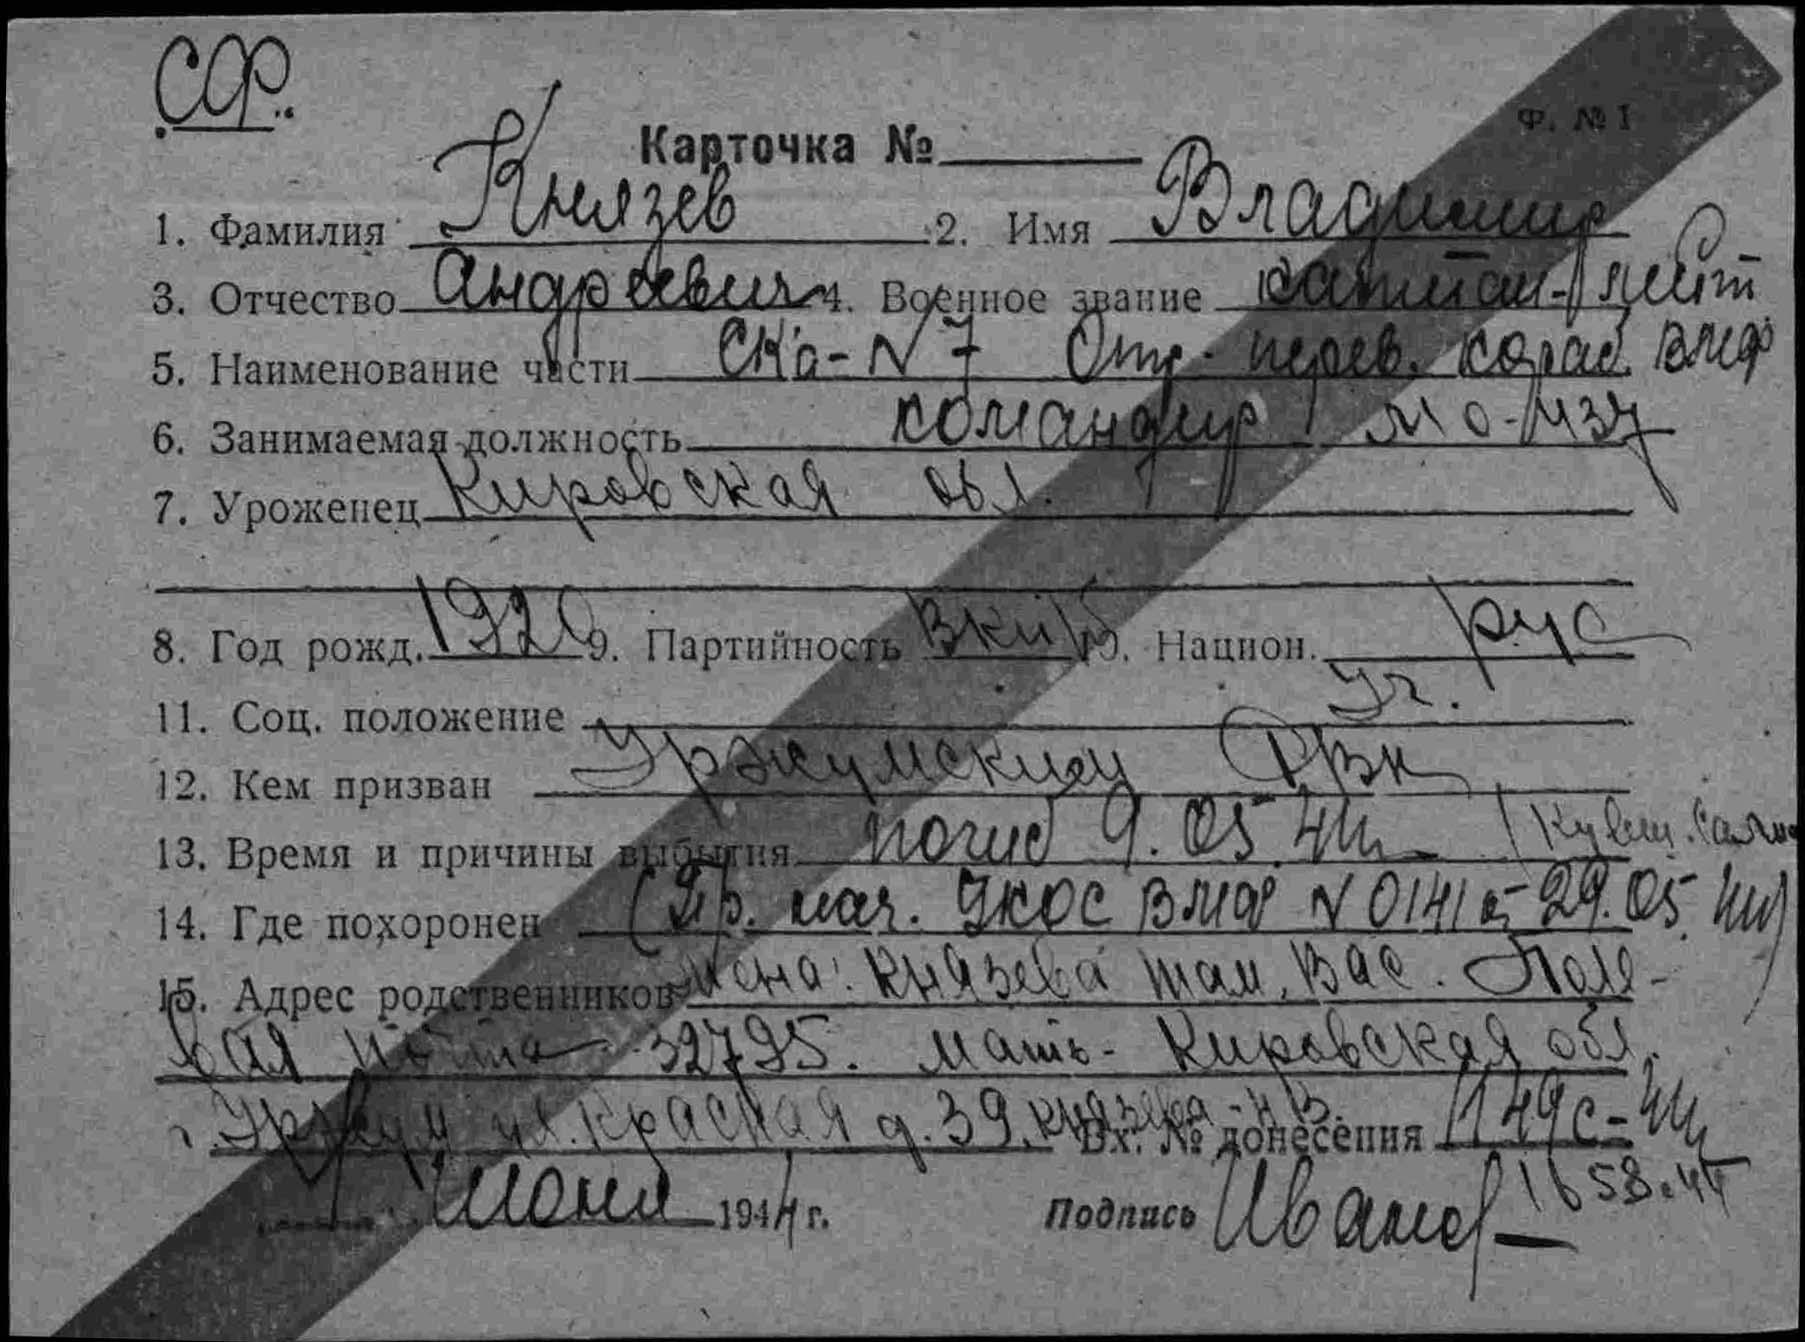 СФ.
Ф. № 1
Карточка №
1. Фамилия Князев 2. Имя Владимир
3. Отчество Андреевич 4. Военное звание капитан-лейт
5. Наименование части СКА-N 7 Отр. перев. кораб. ВМФ
6. Занимаемая должность командир МО-437
7. Уроженец Кировская обл.
8. Год рожд. 1920 9. Партийность ВКПб 10. Национ. рус
11. Соц. положение Уч.
12. Кем призван Уржумским РВК
13. Время и причины выбытия погиб 9.05.44
14. Где похоронен (Пр. нач. УКОС ВМФ N 0141 29.05.44)
15. Адрес родственников жена: Князева Там. Вас. Поле-
вая почта 32795. Мать - Кировская обл.
г. Уржум ул. Красная д. 39, Князева Вх. № донесения 1149с-44
июня 1944 г. Подпись Иванов 1658-44